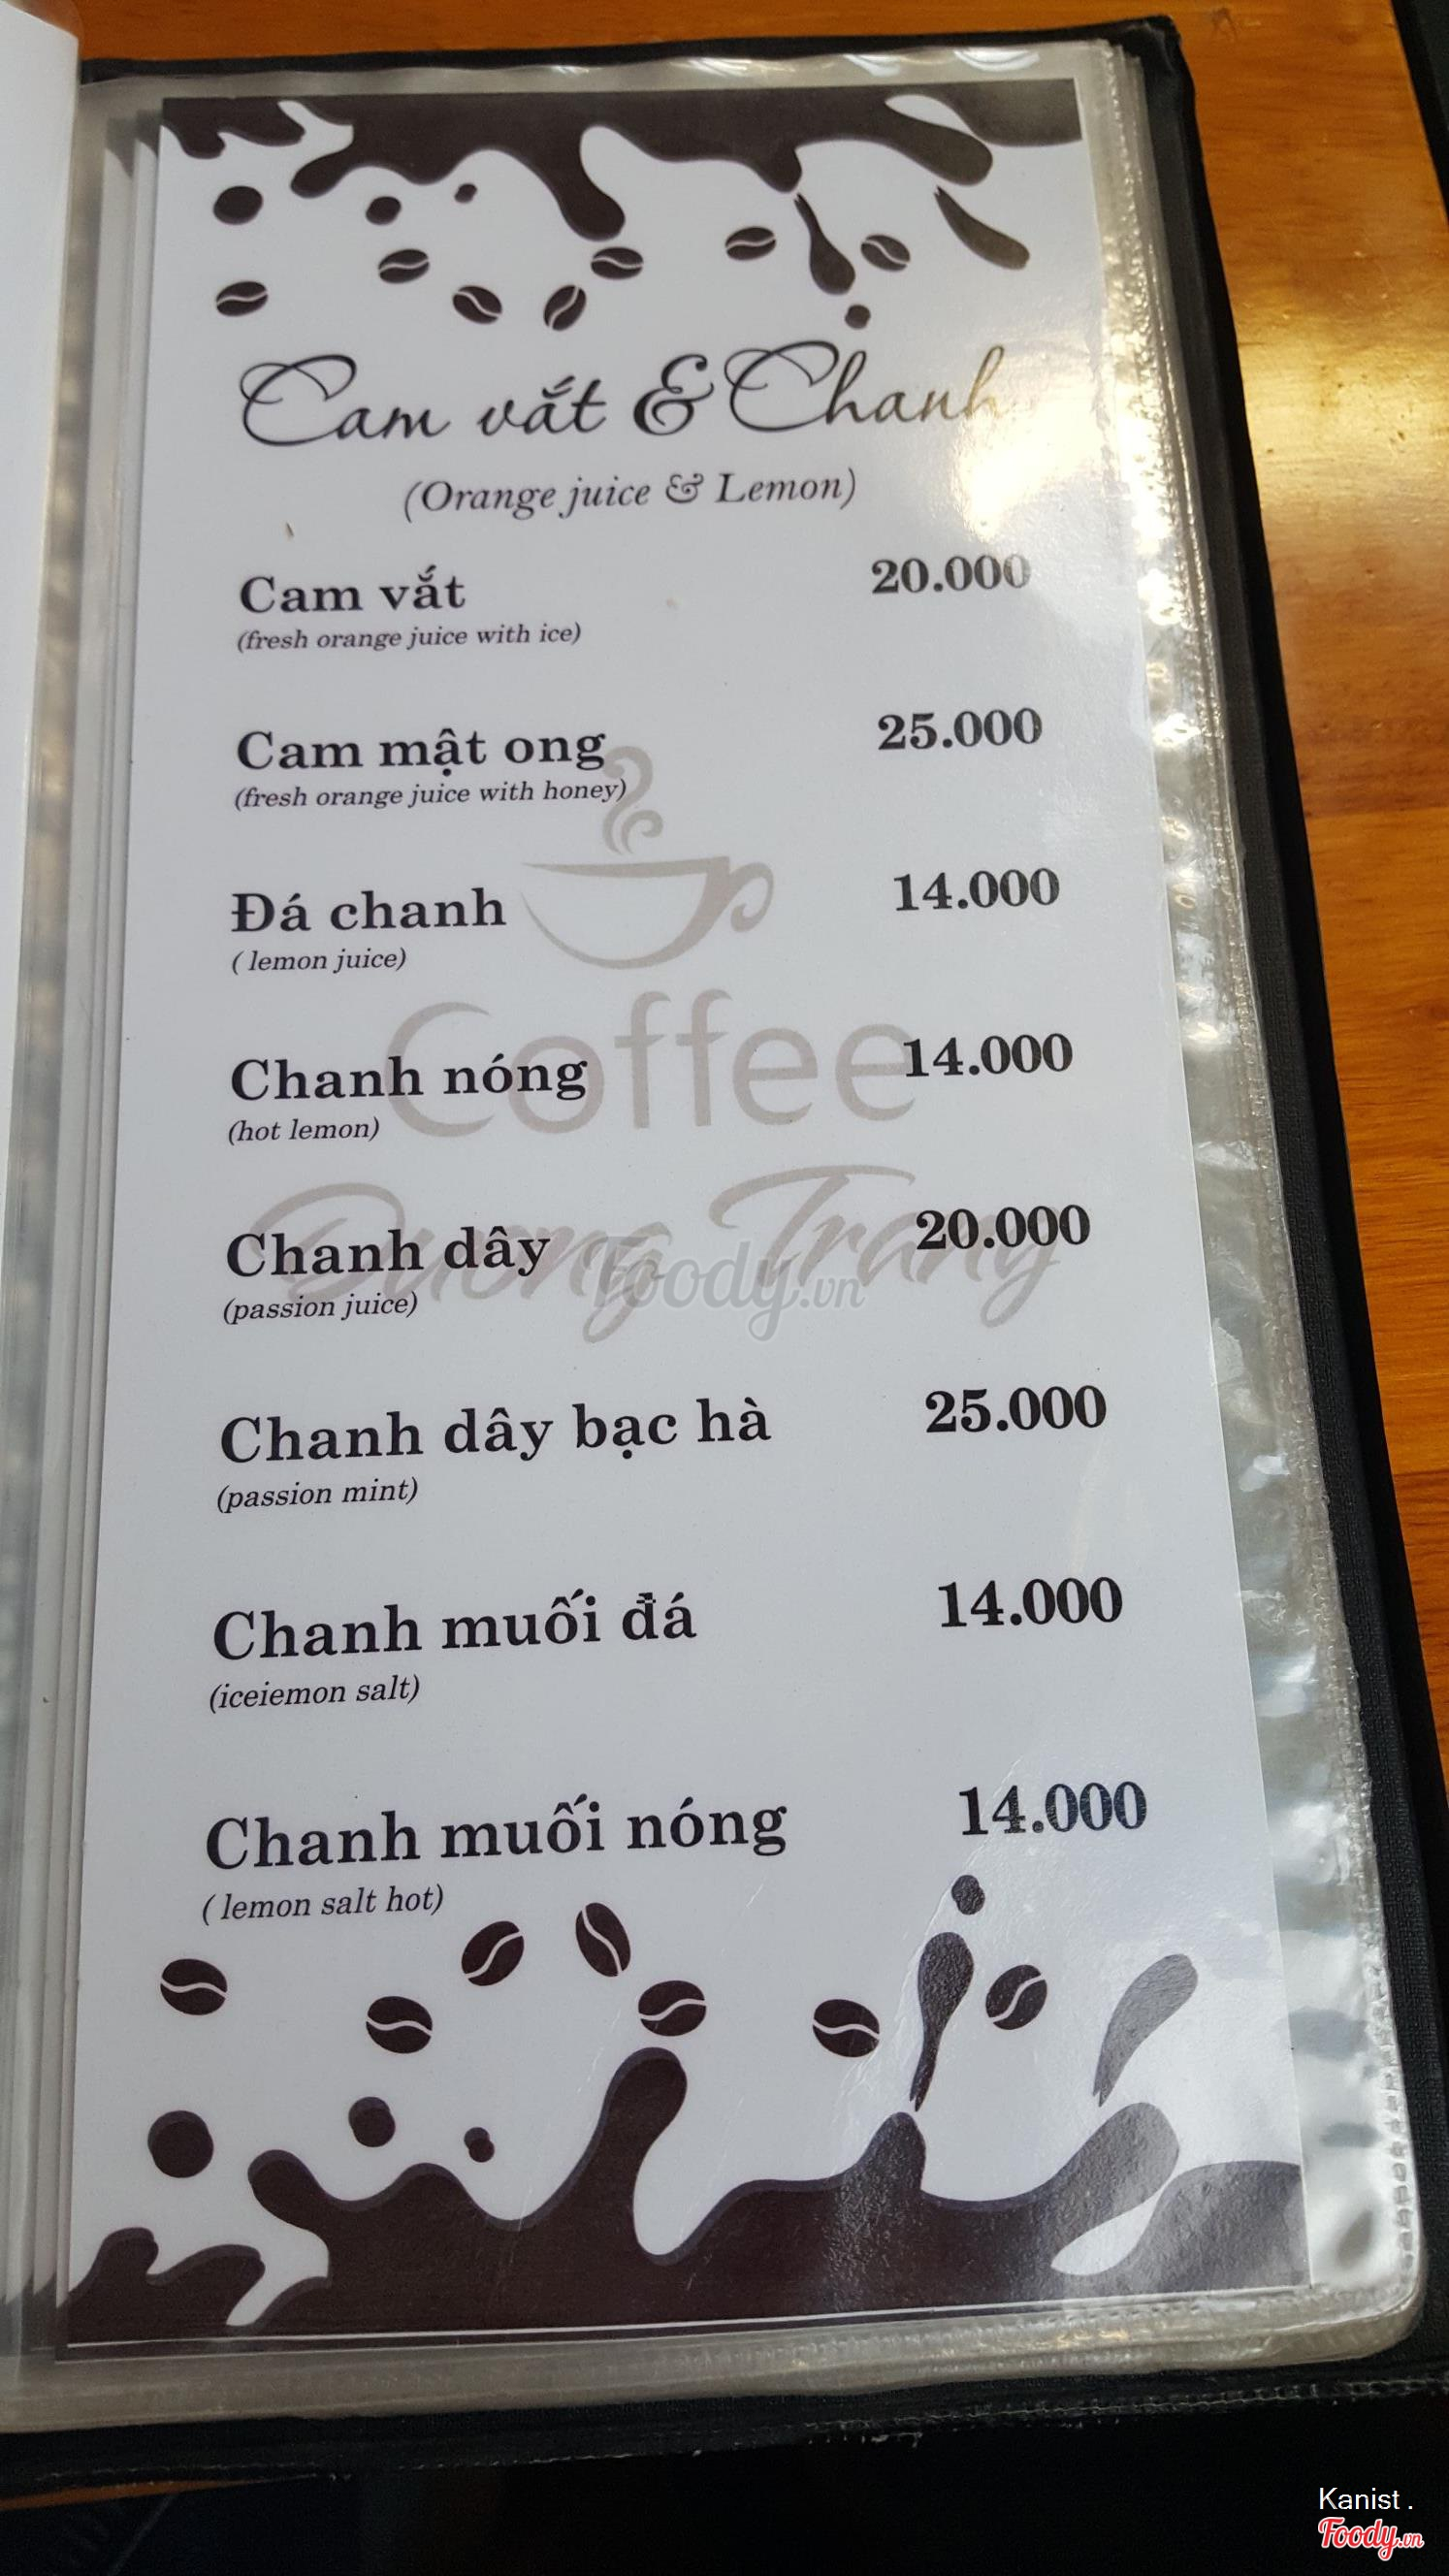 Cam vắt & Chanh
(Orange juice & Lemon)
Cam vắt 20.000
(fresh orange juice with ice)
Cam mật ong 25.000
(fresh orange juice with honey)
Đá chanh 14.000
( lemon juice)
Coffee
Chanh nóng 14.000
(hot lemon)
Duong Trang
Chanh dây 20.000
(passion juice)
Foody.vn
Chanh dây bạc hà 25.000
(passion mint)
Chanh muối đá 14.000
(iceiemon salt)
Chanh muối nóng 14.000
( lemon salt hot)
Kanist .
Foody.vn